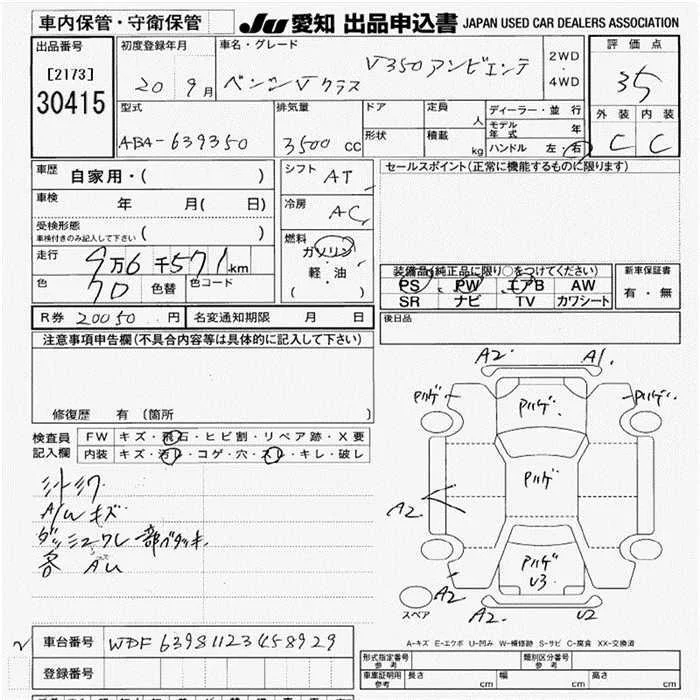 車内保管・守衛保管 JU 愛知 出品申込書 JAPAN USED CAR DEALERS ASSOCIATION
出品番号 初度登録年月 車名・グレード 2WD・4WD 評価点
[2173] 20 9月 ベンツVクラス V350アンビエンテ 3.5
30415 型式 排気量 ドア 定員 人 ディーラー・並行 外装 内装
ABA-639350 3500cc 形状 積載 kg モデル年式 年 C C
ハンドル 左・右
車歴 自家用・( ) シフト AT セールスポイント(正常に機能するものに限ります)
車検 年 月( 日) 冷房 AC
受検形態 ( )
車検付きのみ記入して下さい
走行 9万6千571km 燃料 ガソリン・軽・油・( )
色 色替 色コード
装備品(純正品に限り○をつけてください) 新車保証書
PS PW エアB AW 有・無
SR ナビ TV カワシート
R券 20050円 名変通知期限 月 日 後日品
注意事項申告欄(不具合内容等は具体的に記入して下さい)
修復歴 有 (箇所 )
検査員記入欄 FW キズ・飛石・ヒビ割・リペア跡・X要
内装 キズ・汚レ・コゲ・穴・スレ・キレ・破レ
シートシワ
A/Wキズ
一部ベタツキ
A2 A1
Pハゲ Pハゲ Pハゲ
Pハゲ
A2
Pハゲ
U3
A2 A2
スペア A2 U2
A-キズ E-エクボ U-凹み W-補修跡 S-サビ C-腐食 XX-交換済
車台番号 WDF63981123458929
登録番号
形式指定番号 参考 類別区分番号 参考
車庫証明用 参考 長さ cm 幅 cm 高さ cm